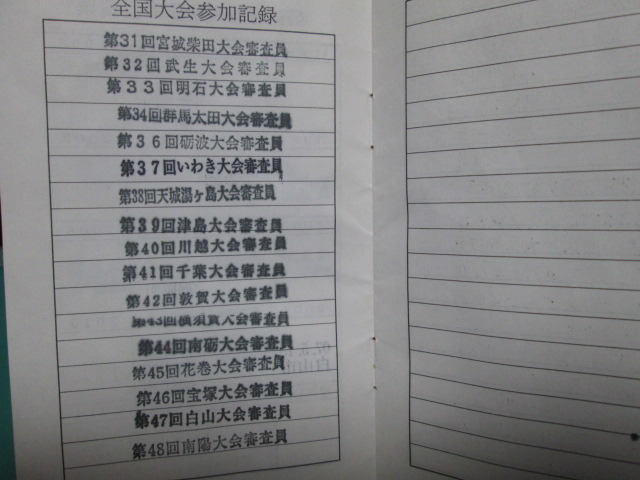 全国大会参加記録
第31回宮城柴田大会審査員
第32回武生大会審査員
第33回明石大会審査員
第34回群馬太田大会審査員
第36回砺波大会審査員
第37回いわき大会審査員
第38回天城湯ヶ島大会審査員
第39回津島大会審査員
第40回川越大会審査員
第41回千葉大会審査員
第42回敦賀大会審査員
第43回横須賀大会審査員
第44回南砺大会審査員
第45回花巻大会審査員
第46回宝塚大会審査員
第47回白山大会審査員
第48回南陽大会審査員